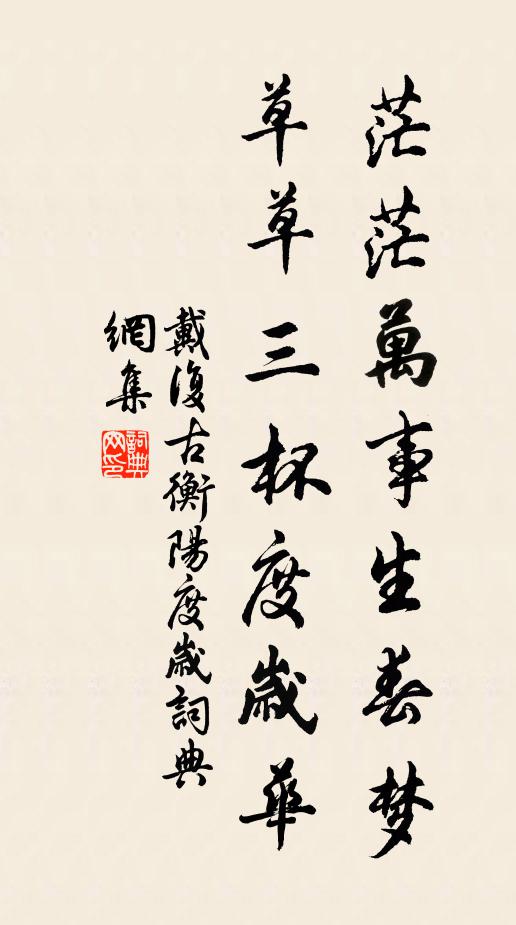 茫茫萬事生春梦
草草三杯度歲華
戴復古衡陽度歲詞典
網集
詞典
网印